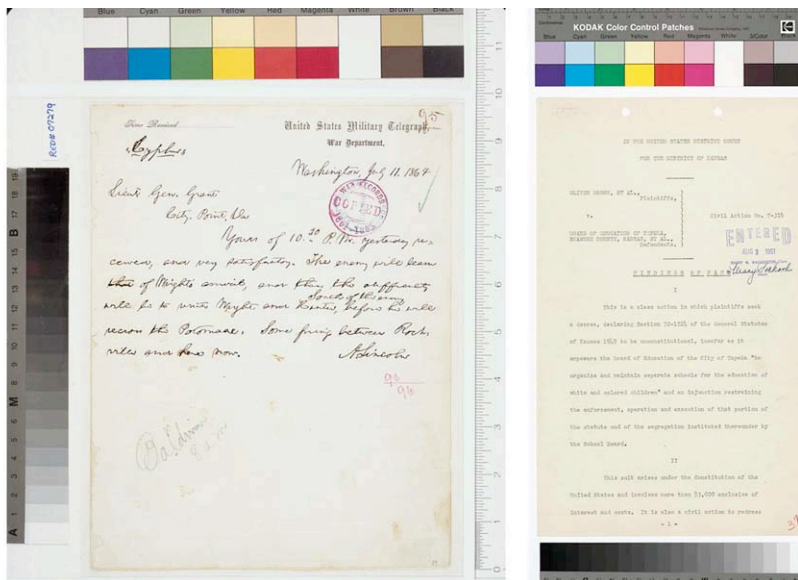 Blue Cyan Green Yellow Red Magenta White Brown Black
RED# 07279
Time Received
United States Military Telegraph,
War Department.
95
Cypher
Washington, July 11. 1864
Lieut. Gen. Grant
City-Point, Va
Yours of 10.30 P.M. yesterday re-
ceived, and very satisfactory. The enemy will learn
of Wright's arrival, and then the difficulty
will be to unite Wright and Hunter, South of the enemy before he will
recross the Potomac. Some firing between Rock-
ville and here now.
A. Lincoln
WAR RECORDS
COPIED
1861-1865
96
96
Baldwin
KODAK Color Control Patches
Blue Cyan Green Yellow Red Magenta White 3/Color Black
IN THE UNITED STATES DISTRICT COURT
FOR THE DISTRICT OF KANSAS
OLIVER BROWN, ET AL.,
Plaintiffs,
v.
Civil Action No. T-316
BOARD OF EDUCATION OF TOPEKA,
SHAWNEE COUNTY, KANSAS, ET AL.,
Defendants.
ENTERED
AUG 3 1951
FINDINGS OF FACT
I
This is a class action in which plaintiffs seek
a decree, declaring Section 72-1724 of the General Statutes
of Kansas 1949 to be unconstitutional, insofar as it
empowers the Board of Education of the City of Topeka "to
organize and maintain separate schools for the education of
white and colored children" and an injunction restraining
the enforcement, operation and execution of that portion of
the statute and of the segregation instituted thereunder by
the School Board.
II
This suit arises under the Constitution of the
United States and involves more than $3,000 exclusive of
interest and costs. It is also a civil action to redress
- 1 -